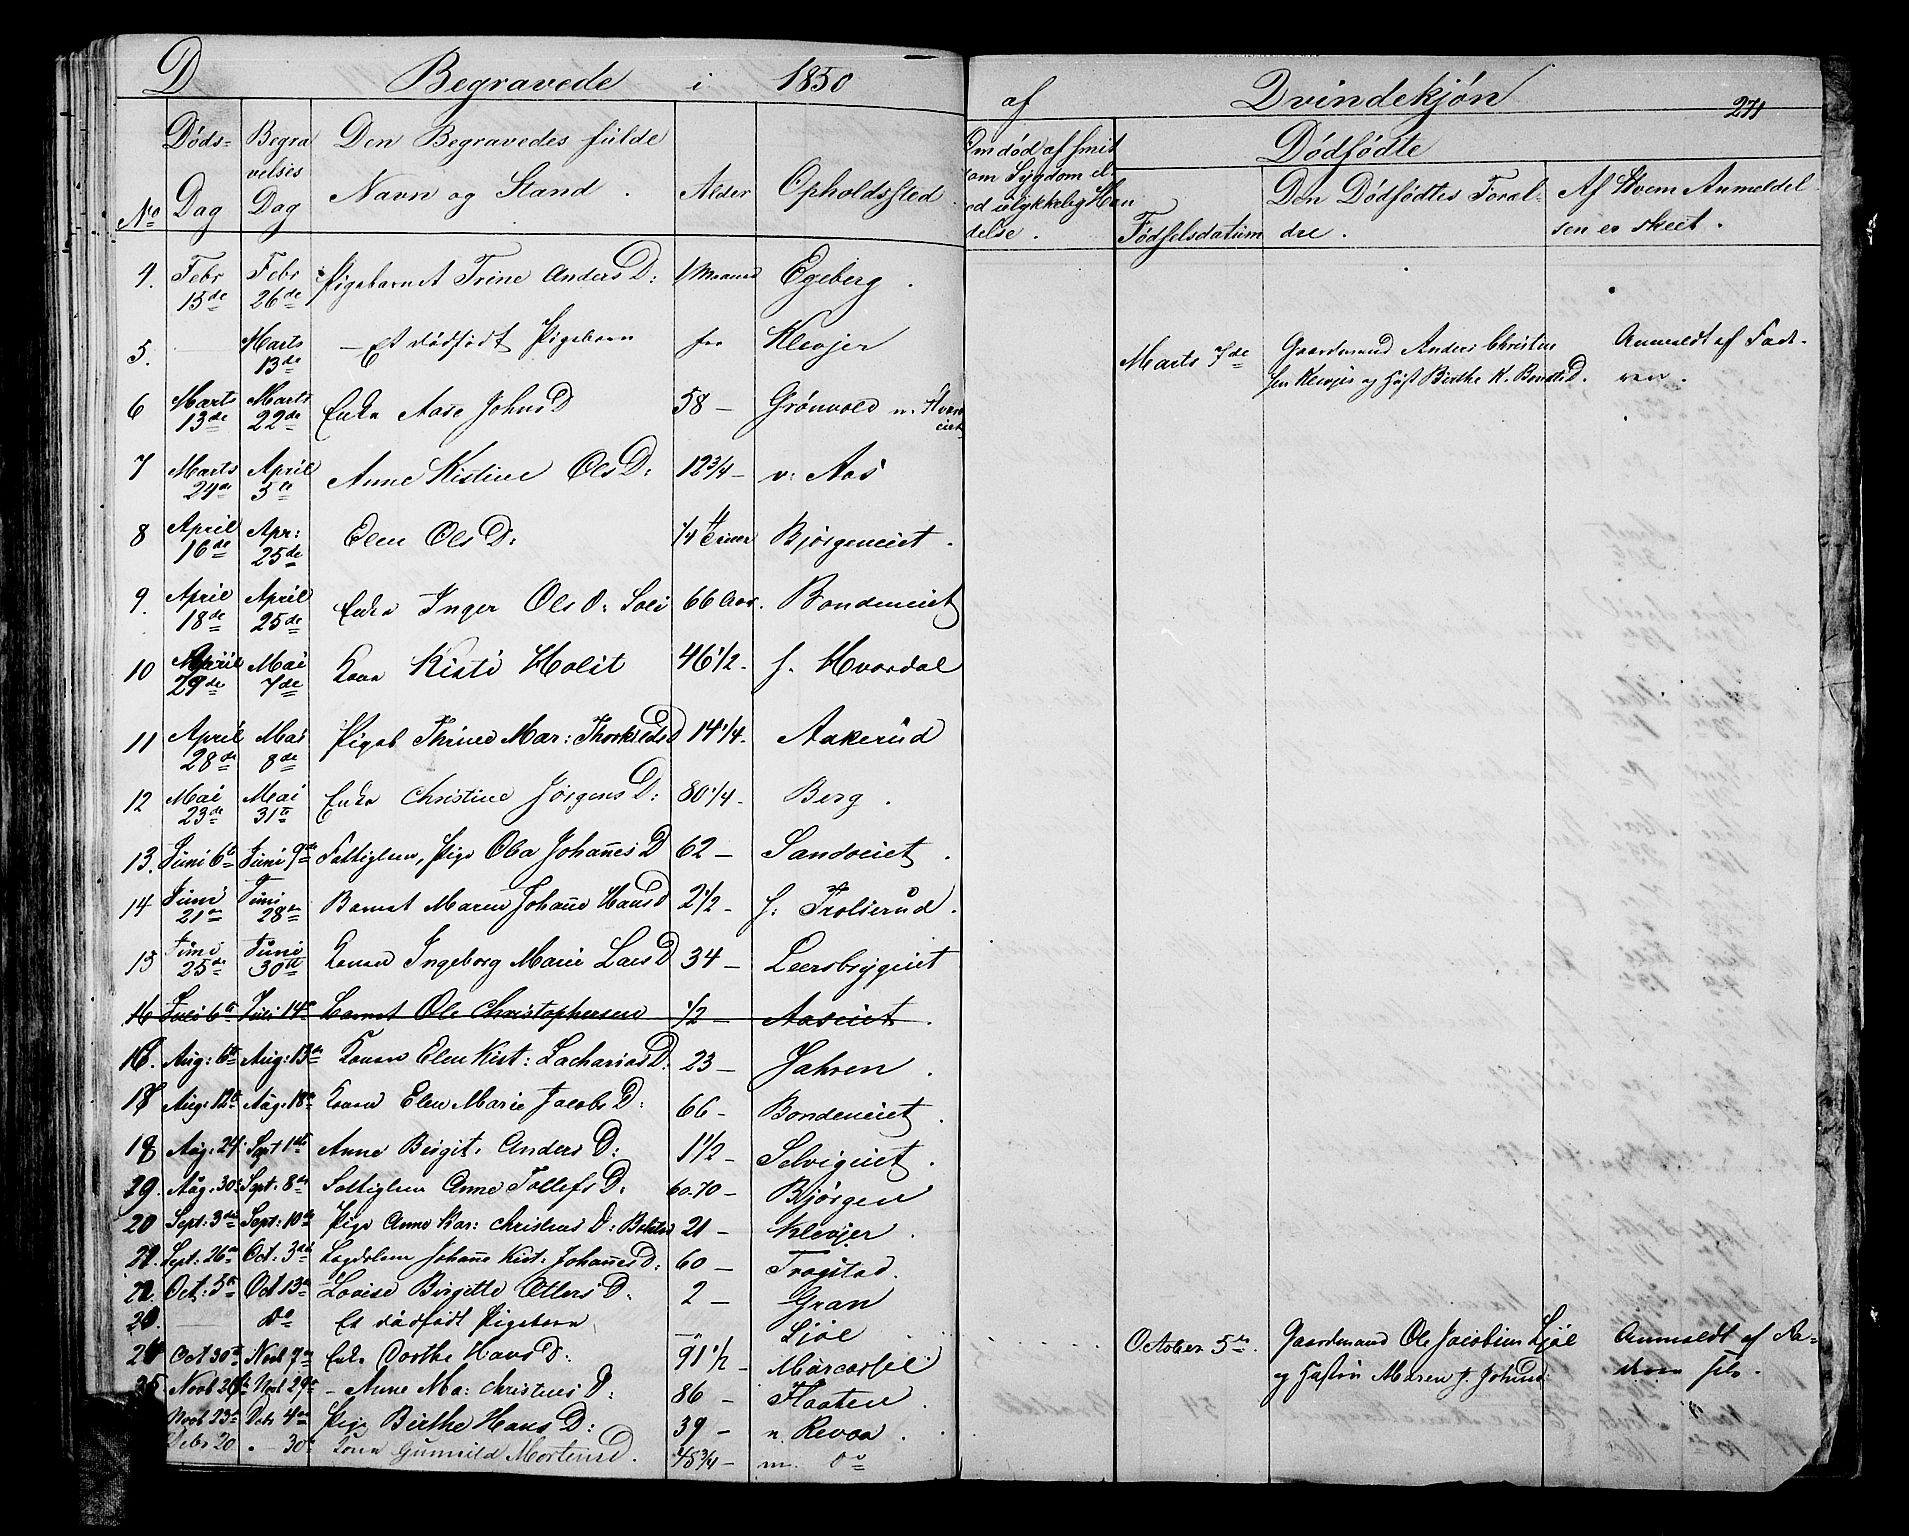 D Begravede i 1850 af Qvindekjön 271
No Døds-Dag Begravelses Dag Den Begravedes fulde Navn og Stand. Alder Opholdssted. Om død af smitsom Sygdom el. ved ulykkelig Hændelse.
Dödfödte
Födselsdatum Den Dödfödtes Foraldre. Af Hvem Anmeldelsen er skeet.
Febr 15de Febr 26de Pigebarnet Trine Anders D: 1 Maaned Egeberg.
5. — Marts 13de — Et dödfödt Pigebarn Klevjer Marts 7de Gaardmand Anders Christensen Klevjer og Anmeldt af Fadren.
6 Marts 13de Marts 22de Enke Aase Johns D 58 — Grönvold n.
7 Marts 24de April 5te Anne Kistine Ols D: 12 3/4 — v: Aas
8 April 16de Apr: 25de Elen Ols D: 1/4 Bjørgeneiet.
9. April 18de April 25de Enke Inger Ols D: Soli 66 Aar. Bondeneiet
10 April 29de Mai 7de Kone Kisti Holit 46 1/2 — s. Hvordal
11 April 28de Mai 8de Pigeb Thrine Mar: Thorkilds D 14 1/4 — Aakerud
12 Mai 23de Mai 31te Enke Christine Jørgens D: 80 1/4 — Berg.
13. Juni 6te Juni 9de Fattiglem, Pige Oba Johanes D 62 — Sandveiet.
14 Juni 21de Juni 28de Barnet Maren Johane Hans D 2 1/2 — s: Trolserud.
15 Juni 25de Juni 30te Konen Ingeborg Marie Lars D 34 — Leersbrygeiet
16 Juli 6te Juli 14de Barnet Ole Christophersen 1/2 — Aaseiet.
16. Aug: 6te Aug: 13de Konen Elen Kist: Zacharias D: 23 — Jahren.
Aug: 12te Aug: 18de Konen Elen Marie Jacobs D: 66 — Bondeneiet.
18 Aug: 24. Sept 1ste Anne Birgit. Anders D: 1 1/2 — Selvigeiet.
Aug: 30te Sept: 8de Fattiglem Anne Tollefs D: 60-70 — Bjørgen
20 Sept: 3die Sept: 10de Pige Anne Kar: Christens D: 21 — Klevjer.
21. Sept: 26de Oct: 3die Lægdslem Johane Kist: Johanes D: 60 — Trøgstad.
22 Oct: 5te Oct 13de Lovise Birgitte Otters D. 2 — Gran
— Do Et dödfödt Pigebarn — Ljøe October 5te. Gaardmand Ole Jacobsen Ljøe og Hustru Maren J. Johns D: Anmeldt af Fadren selv.
Oct 30te Novb 7de Enke Dorthe Hans D: 91 1/2 — Murcastel
Novb 20de Novb 29de — Anne Ma: Christens D: 86 — Flaaten.
Novb 23de Debr 4de Pige Birthe Hans D: 39 — n. Revaa.
Debr 20 „ — 30te Kone Gunnild Mortens D. 48 3/4 — m. Do